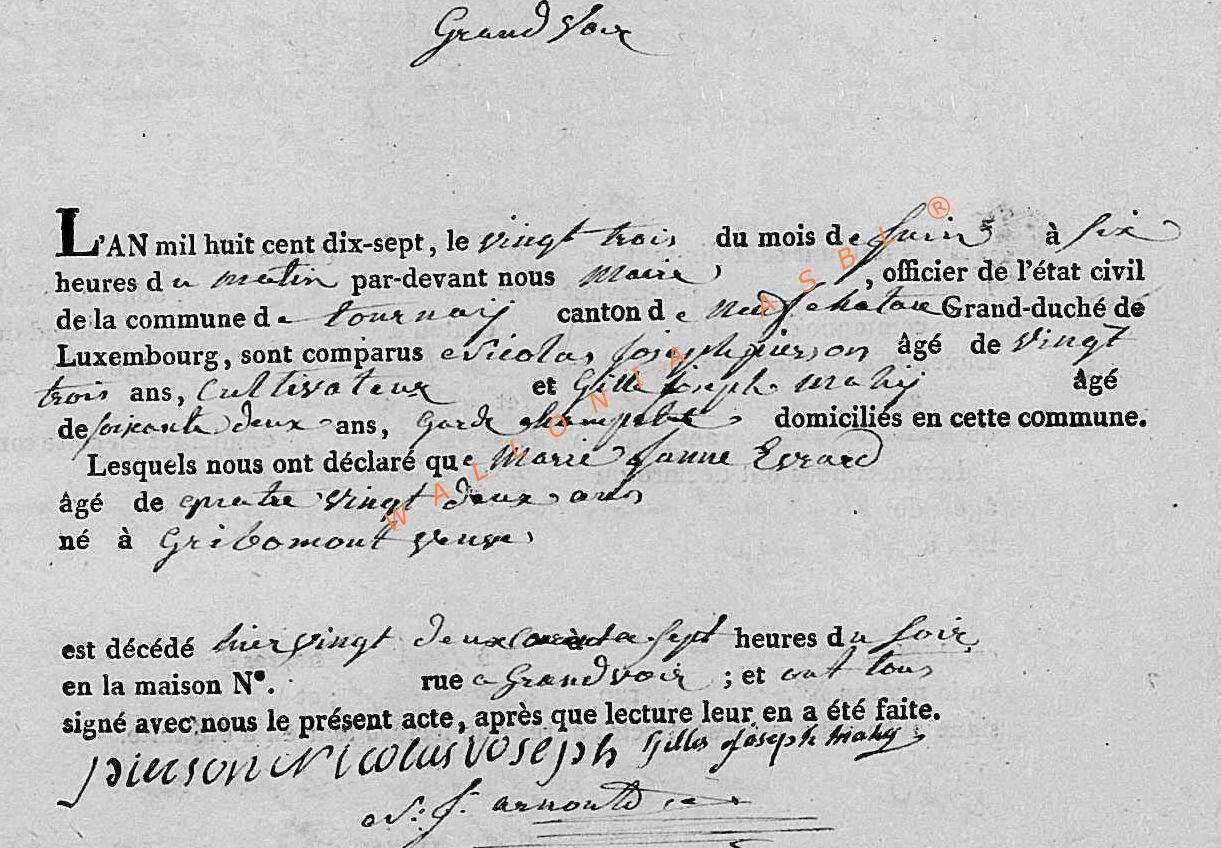 Grandvoir
L'AN mil huit cent dix-sept, le vingt trois du mois de juin à six
heures du matin par-devant nous maire, officier de l'état civil
de la commune de tournay canton de neufchateau Grand-duché de
Luxembourg, sont comparus Nicolas joseph pierson âgé de vingt
trois ans, Cultivateur et Gille joseph mahy âgé
de soixante deux ans, garde champetre domiciliés en cette commune.
Lesquels nous ont déclaré que Marie Jeanne Evrard
âgé de quatre vingt deux ans
né à Gribomont veuve
est décédé hier vingt deux courant a sept heures du soir
en la maison N°. rue a Grandvoir ; et ont tous
signé avec nous le présent acte, après que lecture leur en a été faite.
pierson Nicolas Joseph Gilles joseph mahy
N. J. arnould
WALLONIA ASBL ®